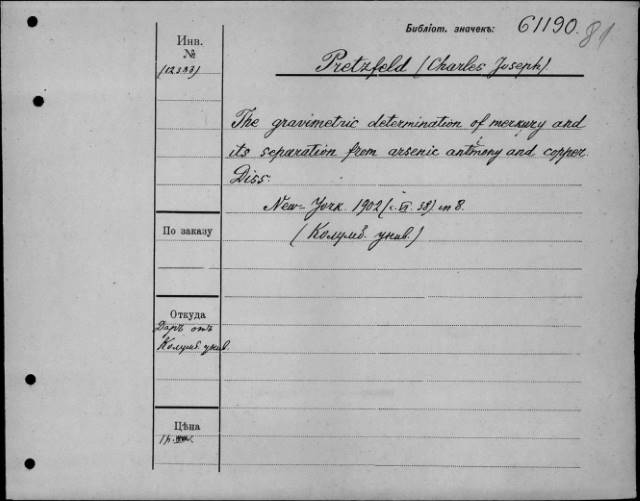 Библіот. значекъ: 61190. 81
Инв.
№
(12333)
Pretzfeld (Charles Joseph).
The gravimetric determination of merkury and
its separation from arsenic antimony and copper
Diss.
New-York. 1902 (c. VI 38) in 8.
(Колумб. унив.)
По заказу
Откуда
Даръ отъ
Колумб. унив.
Цѣна
1 р.